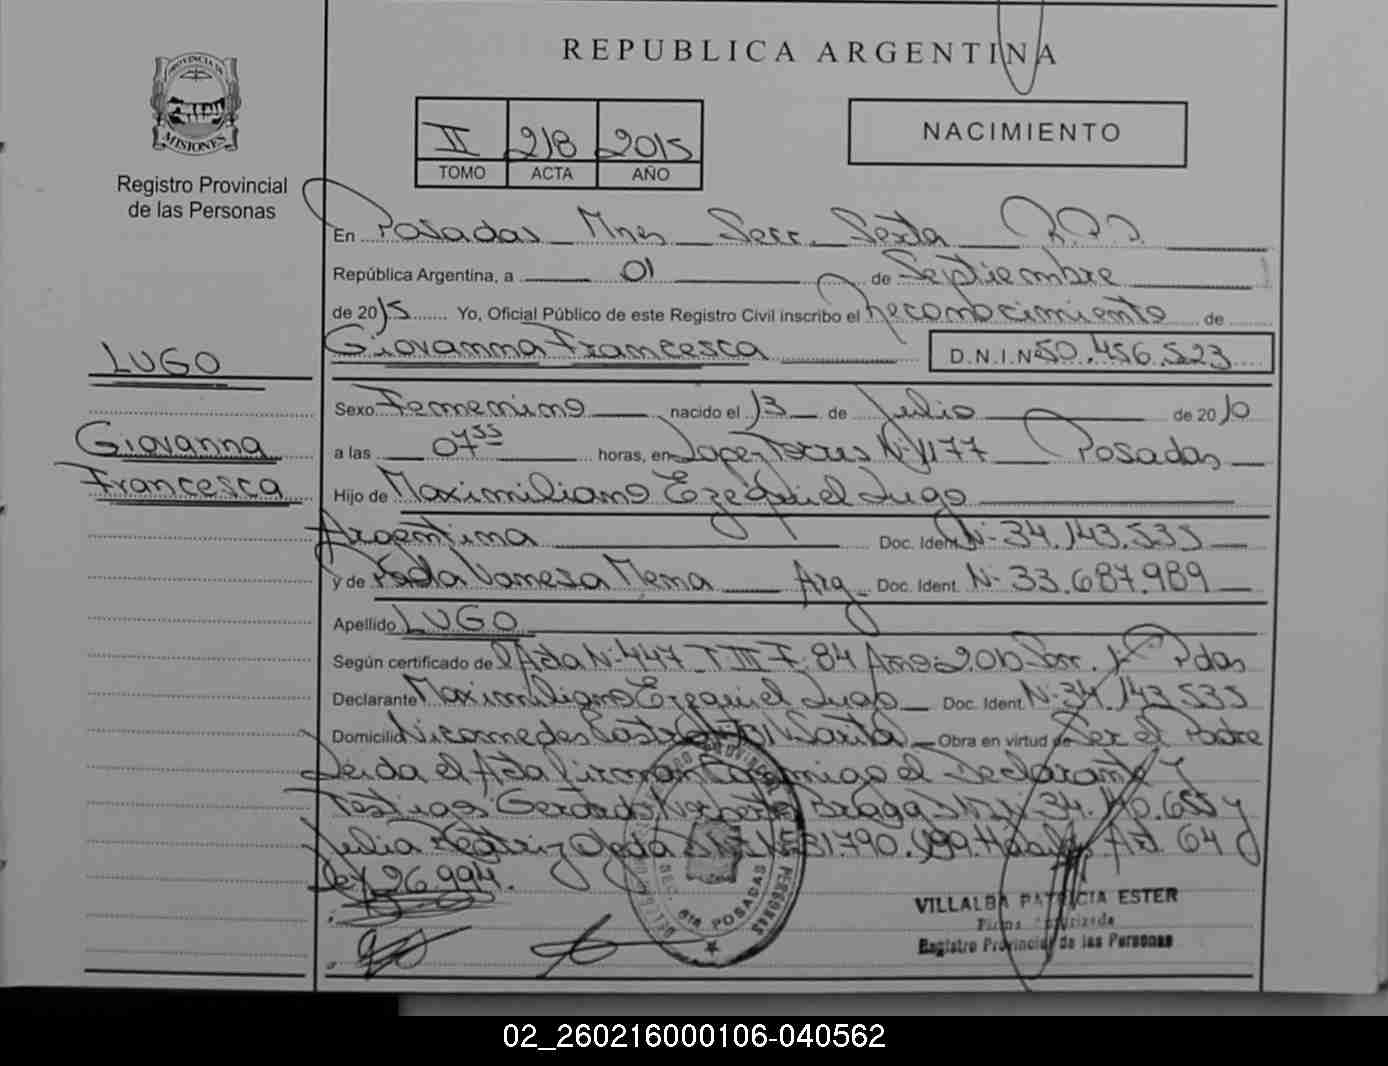 PROVINCIA DE
MISIONES
Registro Provincial
de las Personas
REPUBLICA ARGENTINA
II 218 2015
TOMO ACTA AÑO
NACIMIENTO
En Posadas Mnes Secc. Sexta R.P.P.
República Argentina, a 01 de Septiembre
de 2015 Yo, Oficial Público de este Registro Civil inscribo el Reconocimiento de
Giovanna Francesca D.N.I.Nº 50.456.523
LUGO
Giovanna
Francesca
Sexo Femenino nacido el 13 de Julio de 2010
a las 07 55 horas, en Lopez Torres Nº 1177 Posadas
Hijo de Maximiliano Ezequiel Lugo
Argentina Doc. Ident. Nº 34.143.535
y de Paola Vanesa Mena Arg Doc. Ident. Nº 33.687.989
Apellido LUGO
Según certificado de Acta Nº 447 T III F. 84 Año 2010 Secc. 1º Pdas
Declarante Maximiliano Ezequiel Lugo Doc. Ident. Nº 34.143.535
Domicilio Nicomedes Castro Obra en virtud de Ser el Padre
Leida el Acta Firman Conmigo el Declarante y
Testigos Gerardo Norberto Braga DNI Nº 34. 655 y
Julia Beatriz Ojeda DNI Nº 31.790. Art 64
Ley 26.994.
SEC. 6ta POSADAS
VILLALBA PATRICIA ESTER
Firma Autorizada
Registro Provincial de las Personas
02_260216000106-040562